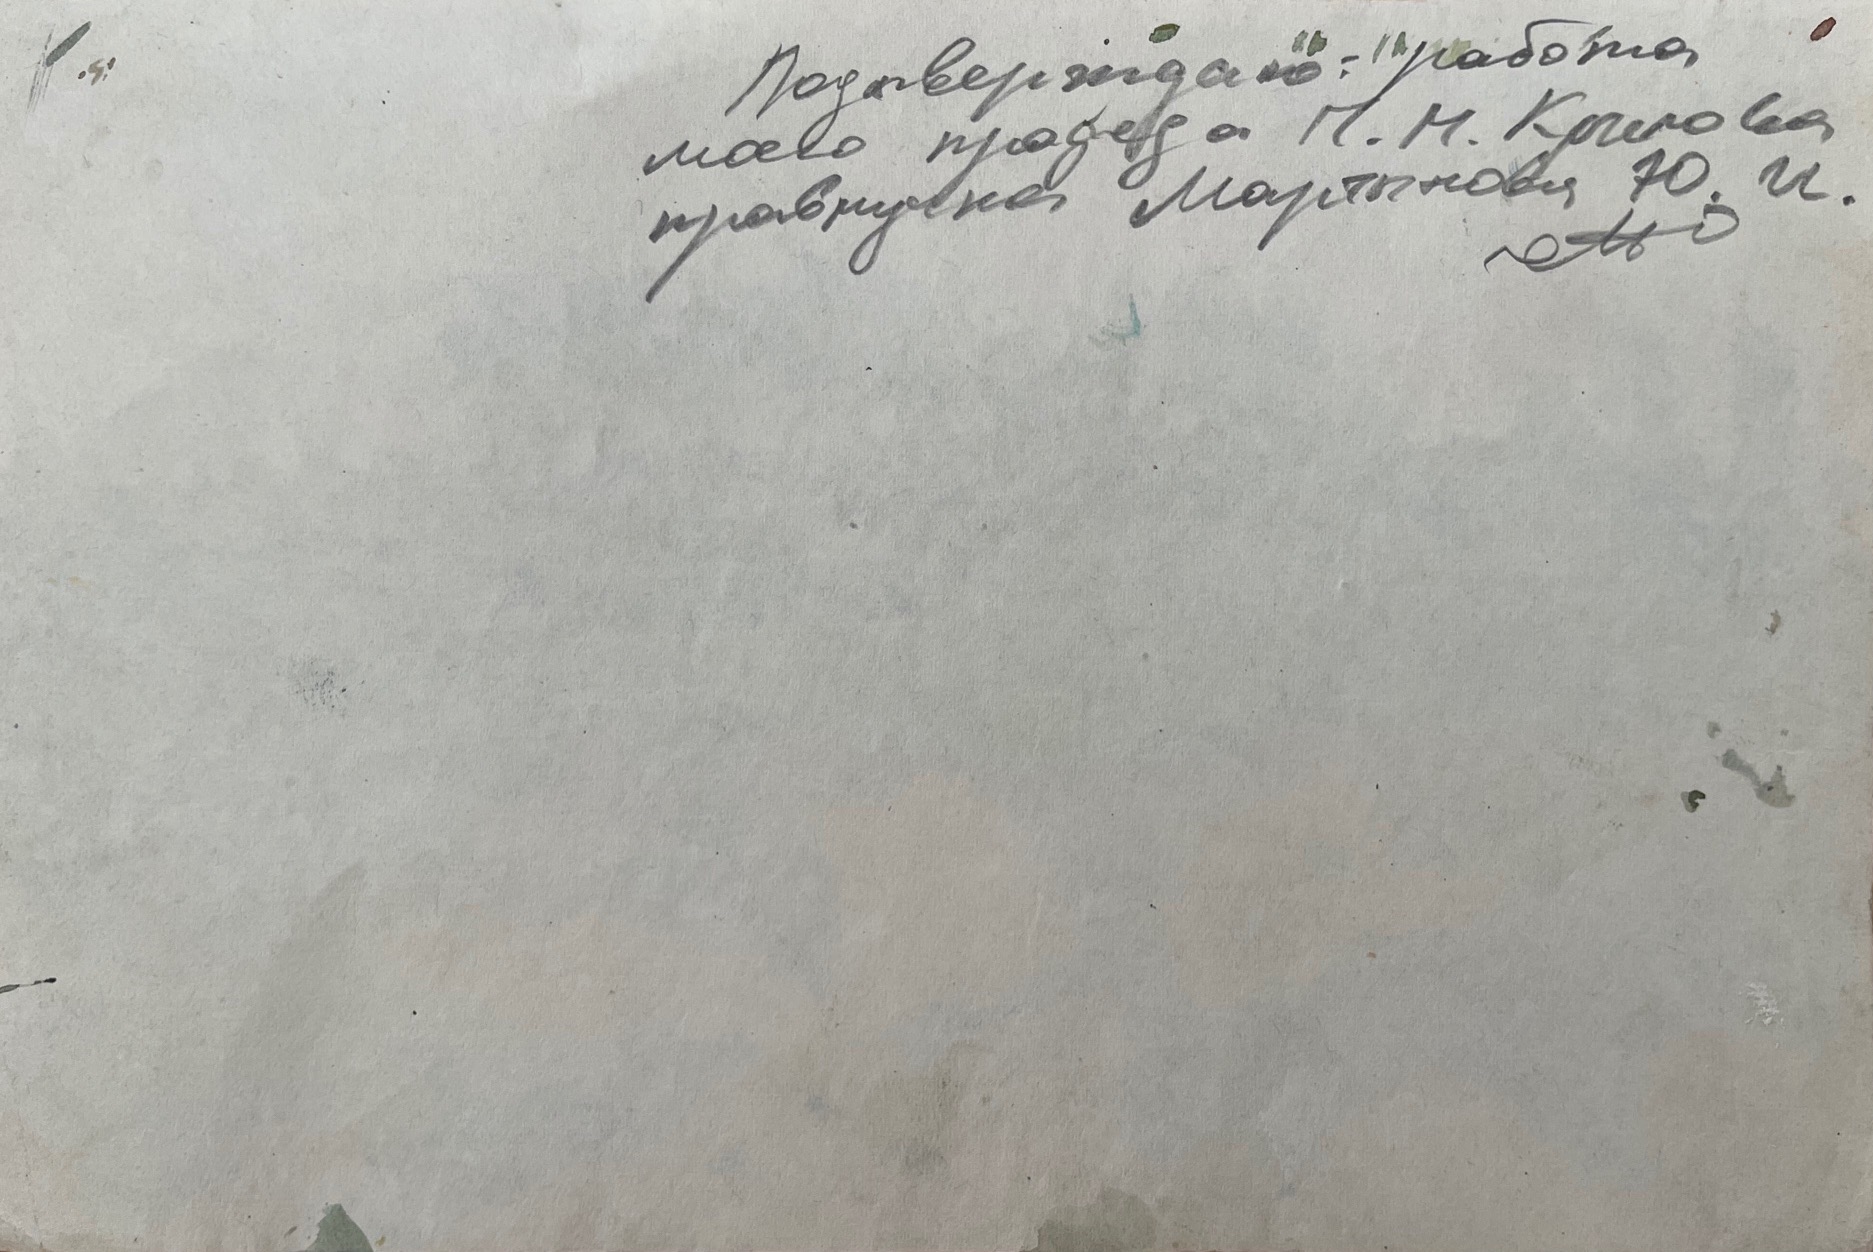 Подтверждаю: "работа
моего прадеда П. Н. Крылова
правнучка Мартынова Ю. И.